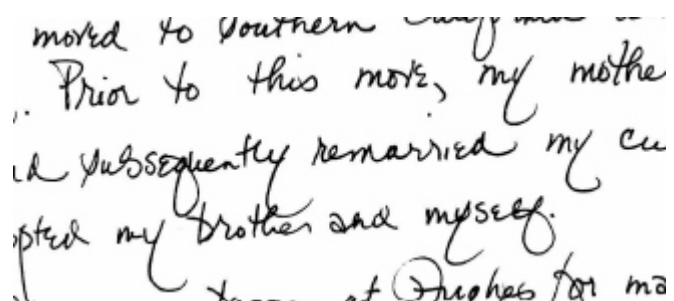 moved to Southern California
. Prior to this move, my mothe
nd subsequently remarried my cu
opted my brother and myself.
at Hughes for ma